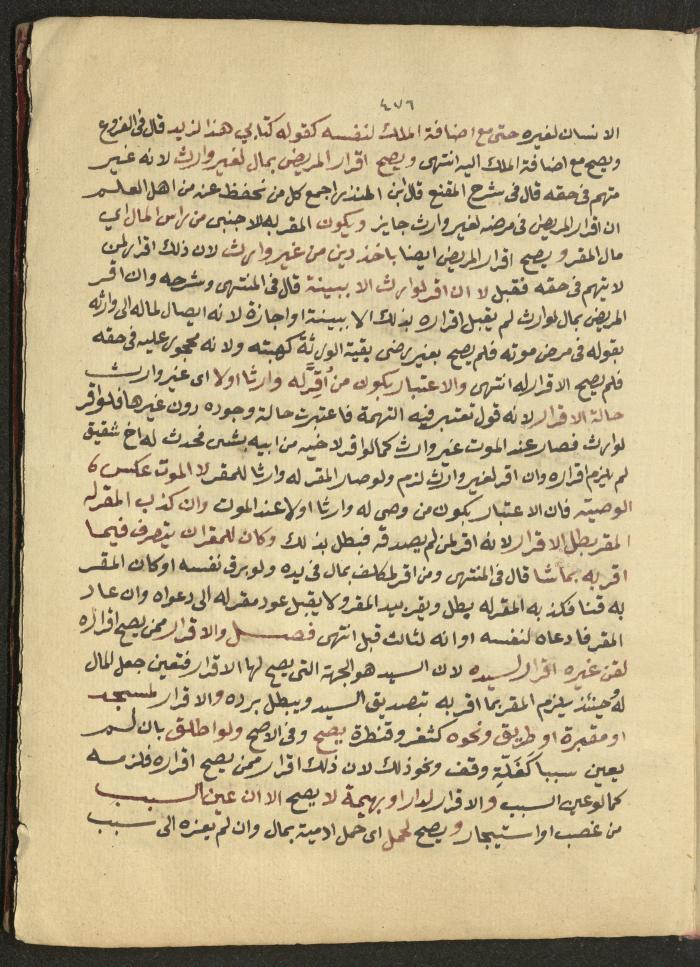 ٤٧٦
الانسان لغيره حتى مع اضافة الملك لنفسه كقوله كتابي هذا لزيد قال في الفروع
ويصح مع اضافة الملك اليه انتهى ويصح اقرار المريض بمال لغير وارث لانه غير
متهم في حقه قال في شرح المقنع قال ابن المنذر اجمع كل من نحفظ عنه من اهل العلم
ان اقرار المريض في مرضه لغير وارث جايز ويكون المقر به لاجنبي من راس المال اي
مال المقر ويصح اقرار المريض ايضا باخذ دين من غير وارث لان ذلك اقرار لمن
لا يتهم في حقه فقبل لا ان اقر لوارث الا ببينة قال في المنتهى وشرحه وان اقر
المريض بمال لوارث لم يقبل اقراره بذلك الا ببينة او اجازة لانه ايصال لماله الى وارثه
بقوله في مرض موته فلم يصح بغير رضى بقية الورثة كهبته ولانه محجور عليه في حقه
فلم يصح الاقرار له انتهى والاعتبار بكون من أُقِرَّ له وارثا اولا اى غير وارث
حالة الاقرار لانه قول تعتبر فيه التهمة فاعتبرت حالة وجوده دون غيرها فلو اقر
لوارث فصار عند الموت غير وارث كما لو اقر لاخيه من ابيه بشى فحدث له اخ شقيق
لم يلزم اقراره وان اقر لغير وارث لزم ولو صار المقر له وارثا للمقر لا الموت عكس
الوصية فان الاعتبار بكون من وصى له وارثا اولا عند الموت وان كذب المقر له
المقر بطل الاقرار لانه اقر لمن لم يصدقه فبطل بذلك وكان للمقر ان يتصرف فيما
اقر به بما شا قال في المنتهى ومن اقر لمكلف بمال في يده ولو برق نفسه او كان المقر
به قنا فكذبه المقر له بطل ويقر بيد المقر ولا يقبل عود مقر له الى دعواه وان عاد
المقر فادعاه لنفسه او انه لثالث قبل انتهى فصل والاقرار ممن يصح اقراره
لقن غيره اقرار لسيده لان السيد هو الجهة التي يصح لها الاقرار فتعين جعل المال
له وحينئذ يلزم المقر بما اقر به بتصديق السيد ويبطل برده والاقرار لمسجد
او مقبرة او طريق ونحوه كثغر وقنطرة يصح وفي الاصح ولو اطلق بان لم
يعين سببا كغَلّةِ وقف ونحو ذلك لان ذلك اقرار ممن يصح اقراره فلزمه
كما لو عين السبب والاقرار لدار او بهيمة لا يصح الا ان عين السبب
من غصب او استيجار ويصح لحمل اى حمل ادمية بمال وان لم يعزه الى سبب